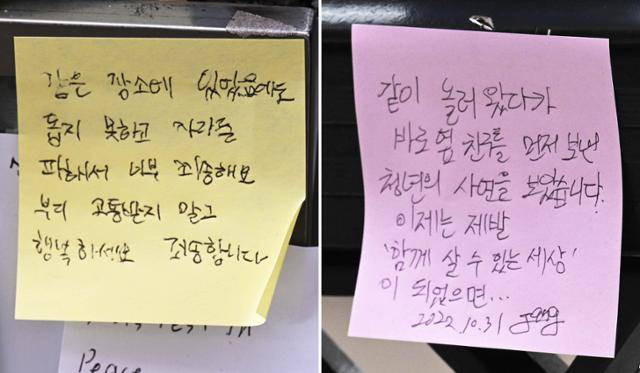 같은 장소에 있었음에도
돕지 못하고 자리를
피해서 너무 죄송해요
부디 고통받지 말고
행복하세요 죄송합니다
Peace
같이 놀러 왔다가
바로 옆 친구를 먼저 보낸
청년의 사연을 보았습니다.
이제는 제발
'함께 살 수 있는 세상'
이 되었으면...
2022.10.31